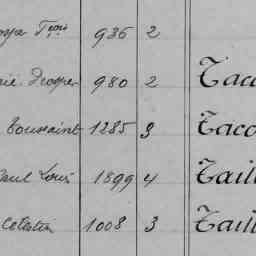 936 2
980 2 Tacc
Toussaint 1285 3 Taco
Paul Louis 1899 4 Taill
Célestin 1008 3 Taill